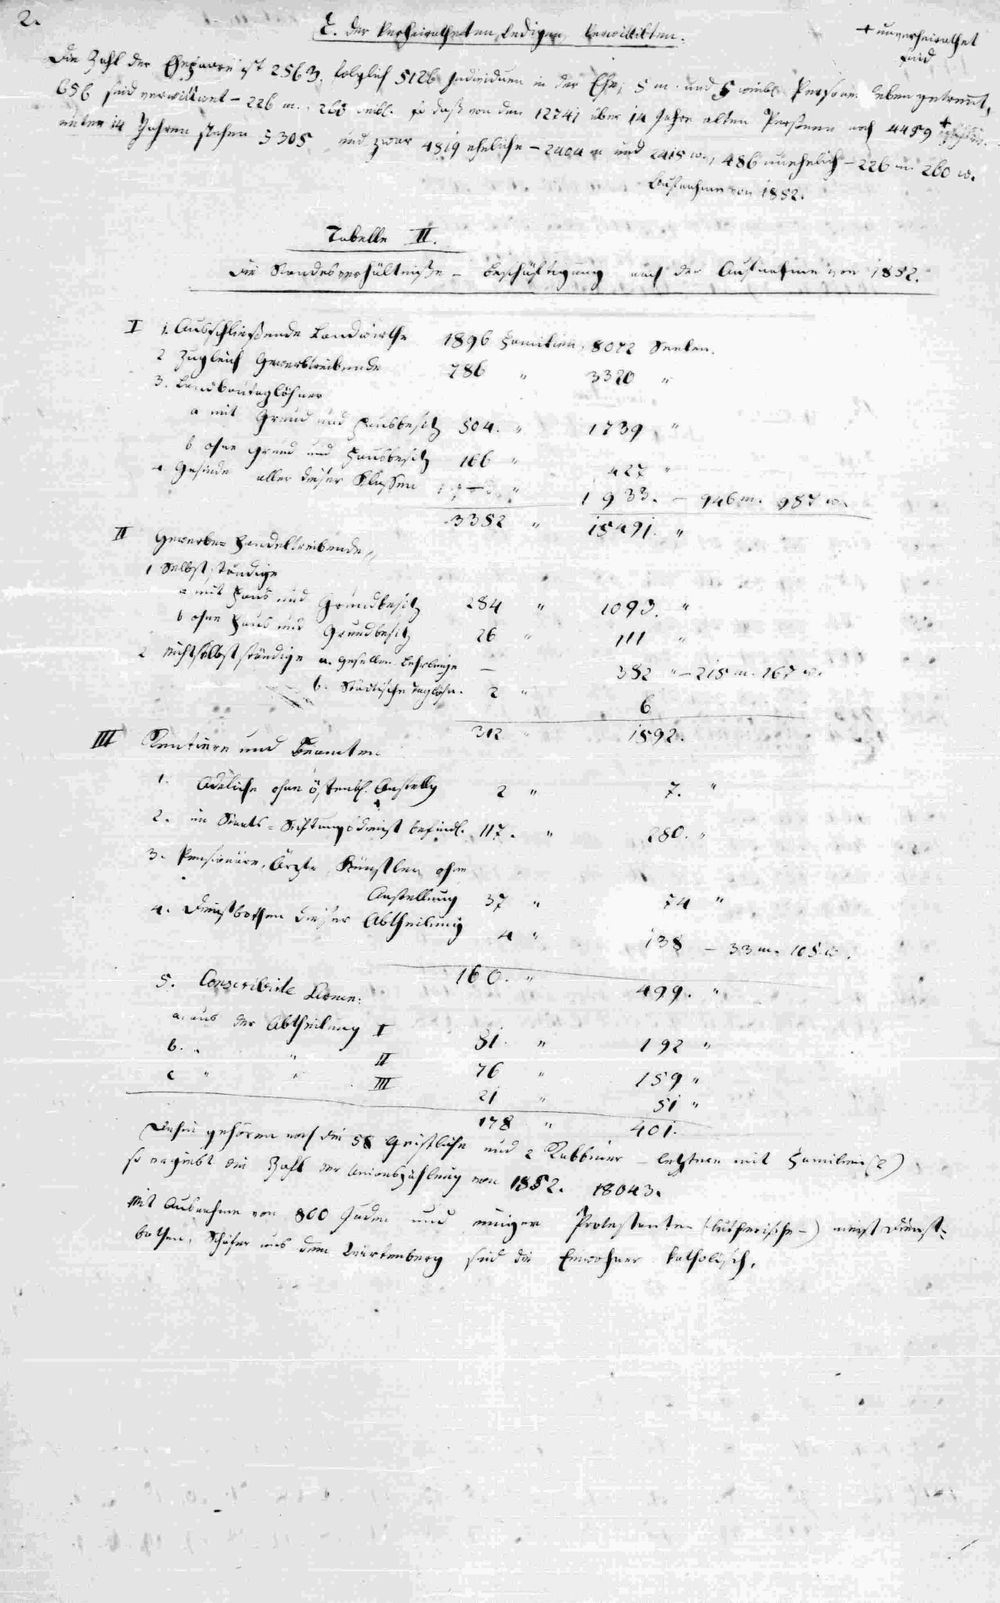 2.
C. der Verheiratheten, Ledigen, Verwittibten.
+ unverheirathet
sind
Die Zahl der Ehepaare ist 2563, folglich 5126 Individuen in der Ehe, 5 m. und 5 weibl. Personen leben getrennt,
656 sind verwittwet – 226 m. weibl. so daß von den 12741 über 14 Jahre alten Personen noch 4459 +
unter 14 Jahren stehen 5305 und zwar 4819 eheliche – 2404 m und 2415 w., 486 unehelich – 226 m. 260 w.
Aufnahme von 1852.
Tabelle II.
Die Standesverhältniße – Beschäftigung nach der Aufnahme von 1852.
I 1. Ausschließende Landwirthe 1896 Familien, 8072 Seelen.
2 Zugleich Gewerbtreibende 786 " 3320 "
3. Landbautaglöhner
a mit Grund und Hausbesitz 504. " 1739 "
b ohne Grund und Hausbesitz 166 " 427 "
4. Gesinde aller dieser Klassen " 1933. – 946 m. 987 w.
3352 " 15491. "
II Gewerbe u Handeltreibende
1 Selbstständige
a mit Haus und Grundbesitz 284 " 1093. "
b ohne Haus und Grundbesitz 26 " 111 "
2 Nichtselbstständige a. Gesellen Lehrlinge – 382 " – 215 m. 167 w.
b. Städtische Taglöhn. 2 " 6
312 " 1592.
III Rentiere und Beamten.
1. Adeliche ohne öffentl. Anstellg 2 " 7. "
2. im Staats- Stiftungsdienst befindl. 117. " 280. "
3. Pensionäre, Ärzte, Künstler ohne
Anstellung 37 " 74 "
4. Dienstbothen dieser Abtheilung 4 " 138 – 33 m. 105 w.
160. " 499. "
5. Conscribirte Arme:
a. aus der Abtheilung I 81. " 192 "
b. " " II 76 " 159 "
c " " III 21 " 51 "
178 " 401.
Dazu gehören noch die 58 Geistliche und 2 Rabbiner – letztere mit Familien (2)
so ergiebt die Zahl der Unionszählung von 1852. 18043.
Mit Ausnahme von 800 Juden und einiger Protestanten (lutherische –) meist Dienst-
bothen, Schäfer aus dem Würtenberg sind die Einwohner katholisch.